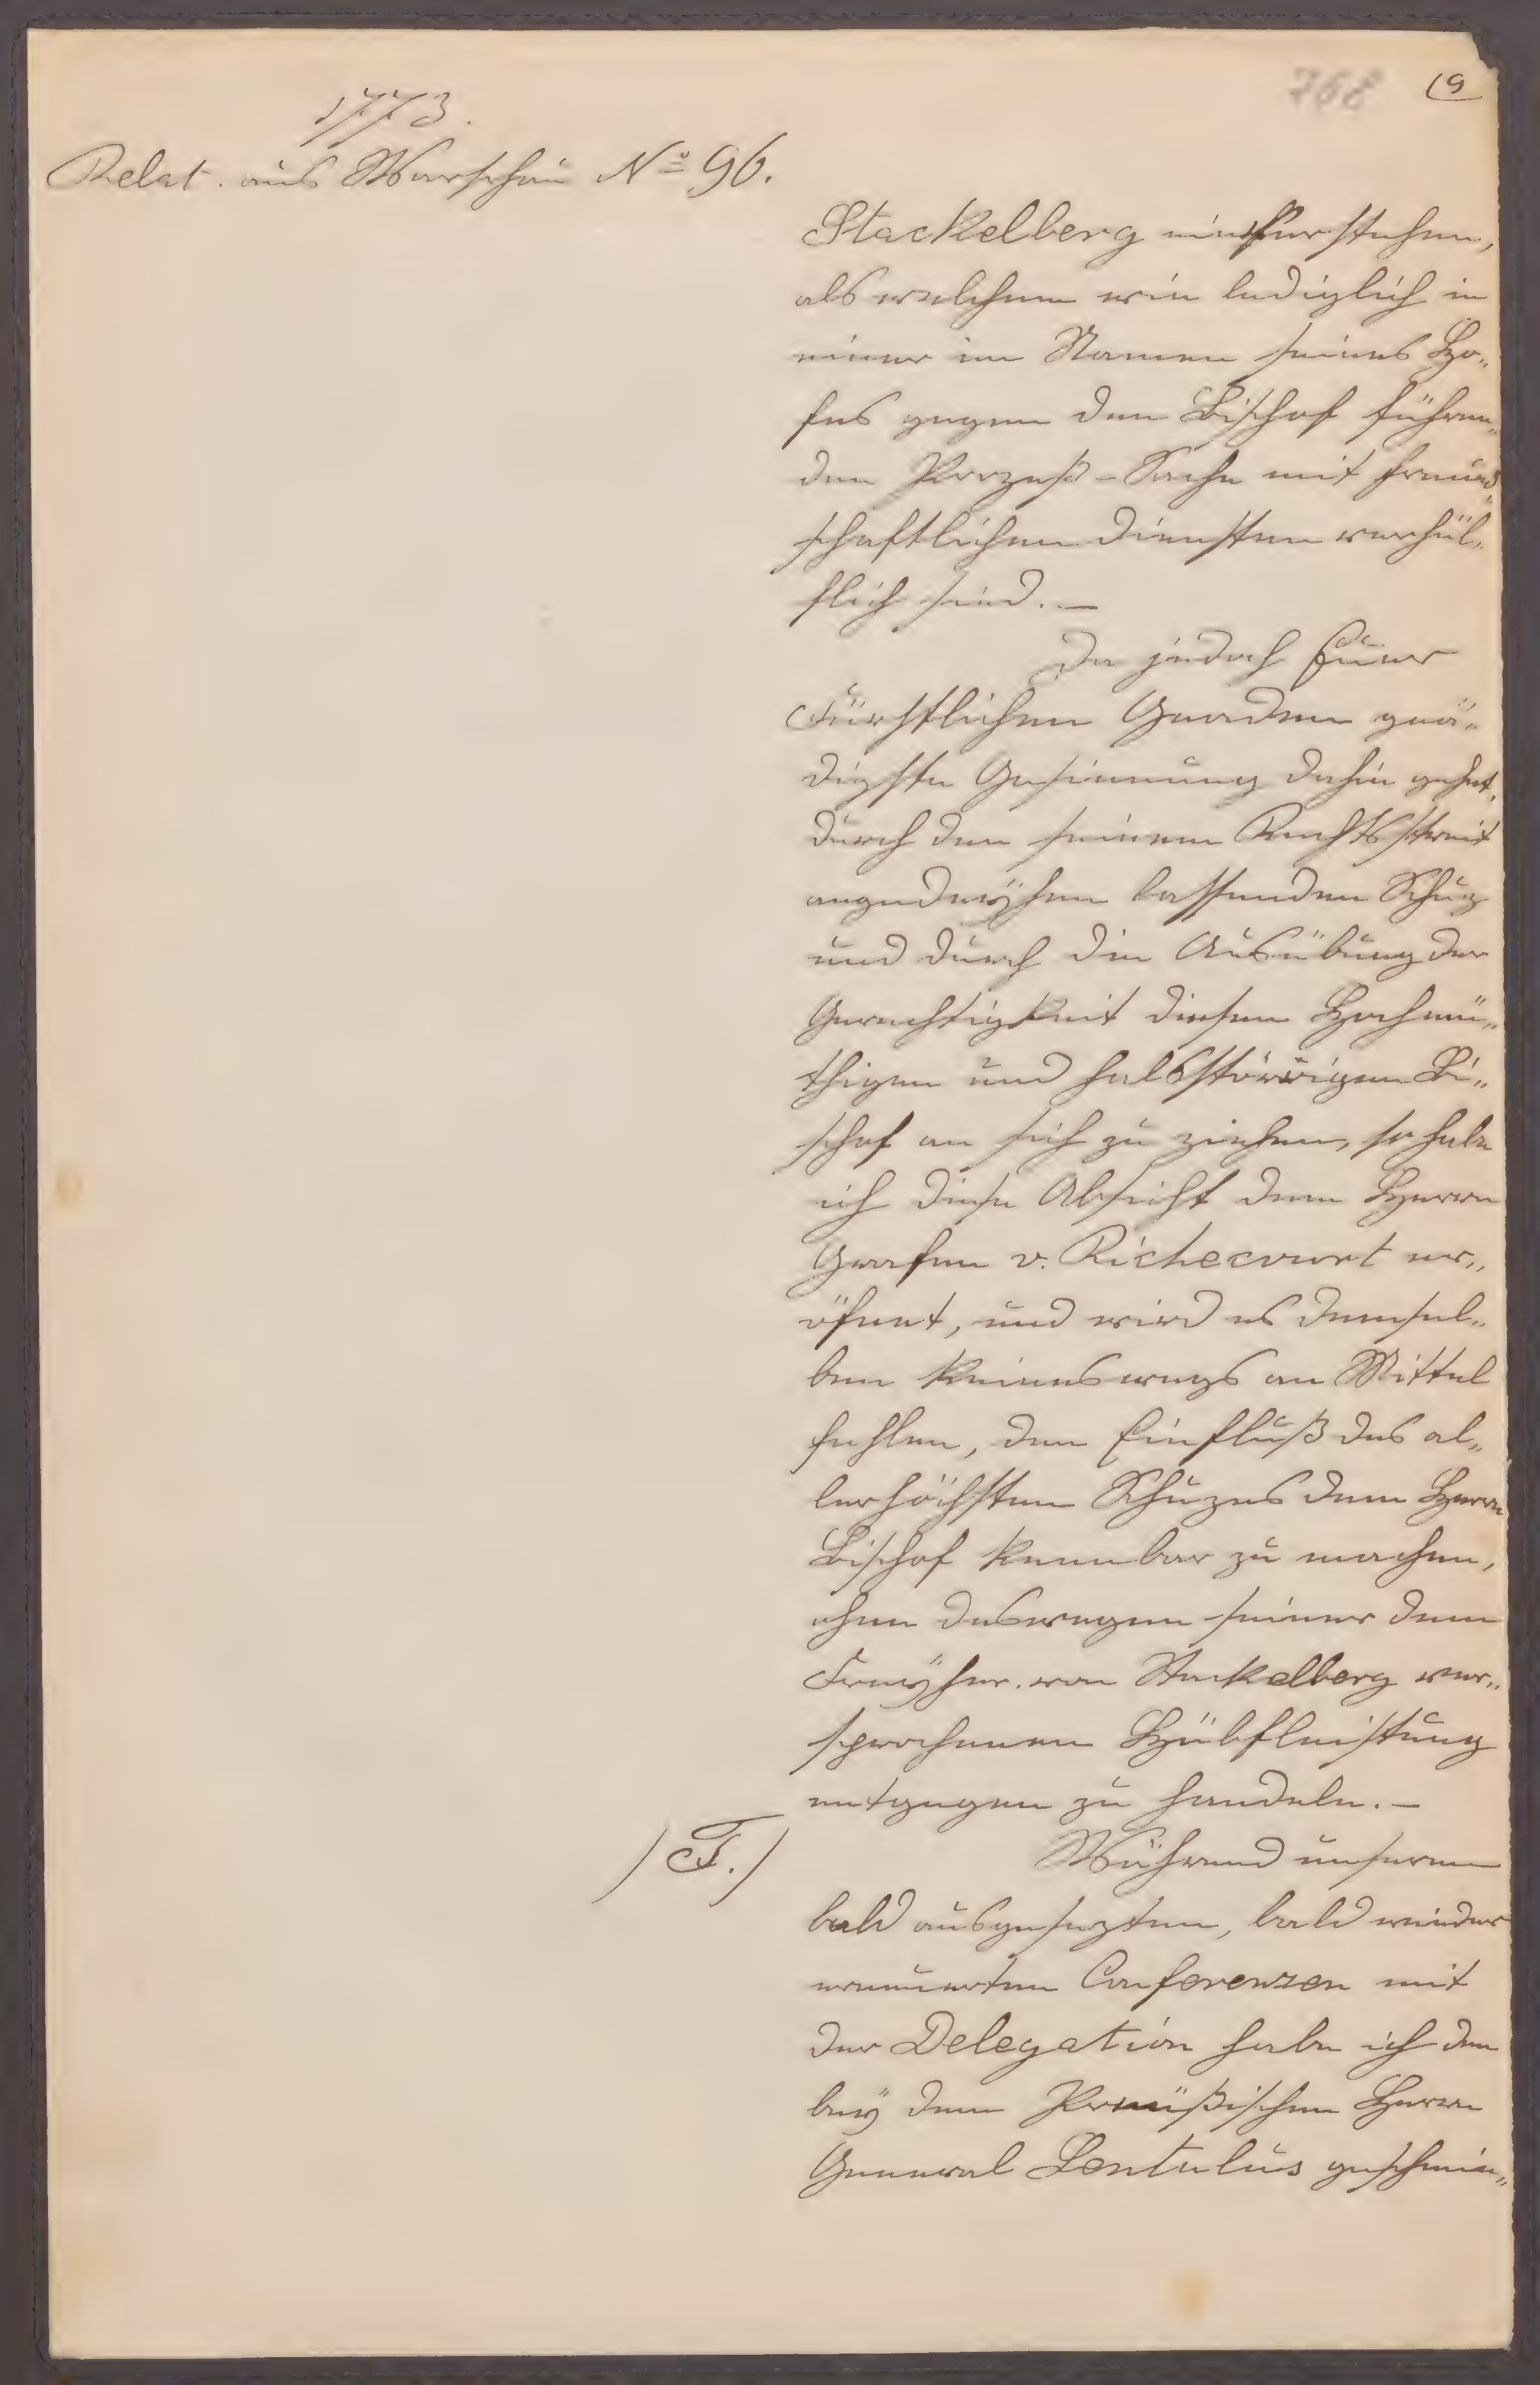 768 (9
1773.
Relat. aus Warschau No 96.
Stackelberg einzustehen,
als welchem wir lediglich in
einer im Namen seines Ho„
fes gegen den Bischof führen„
den Prozeß-Sache mit freund„
schaftlichen Diensten verhül„
flich sind. —
Da jedoch Euer
Fürstlichen Gnaden gnä„
digste Gesinnung dahin gehet,
durch den seinem Rechtsstreit
angedeyhen lassenden Schuz
und durch die Ausübung der
Gerechtigkeit diesen Hochmü„
thigen und halsstörrigen Bi„
schof an sich zu ziehen, so habe
ich diese Absicht dem Herrn
Grafen v. Richecourt er„
öfnet, und wird es demsel„
ben keineswegs an Mittel
fehlen, den Einfluß des al„
lerhöchsten Schuzes dem Herrn
Bischof kennbar zu machen,
ohne deswegen seiner dem
Freyher. von Stackelberg ver„
sprochenen Hülfleistung
entgegen zu handeln. —
/ F. /
Während unseren
bald ausgesezten, bald wieder
erneuerten Conferenzen mit
der Delegation habe ich den
bey dem Preüßischen Herrn
General Lentulus geschmei„